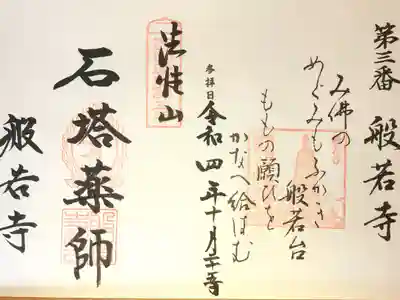 第三番 般若寺
み佛の
めぐみもふかき
般若台
ももの願ひを
かなへ給はむ
参拝日 令和四年十月二十五日
法性山
石塔薬師
般若寺